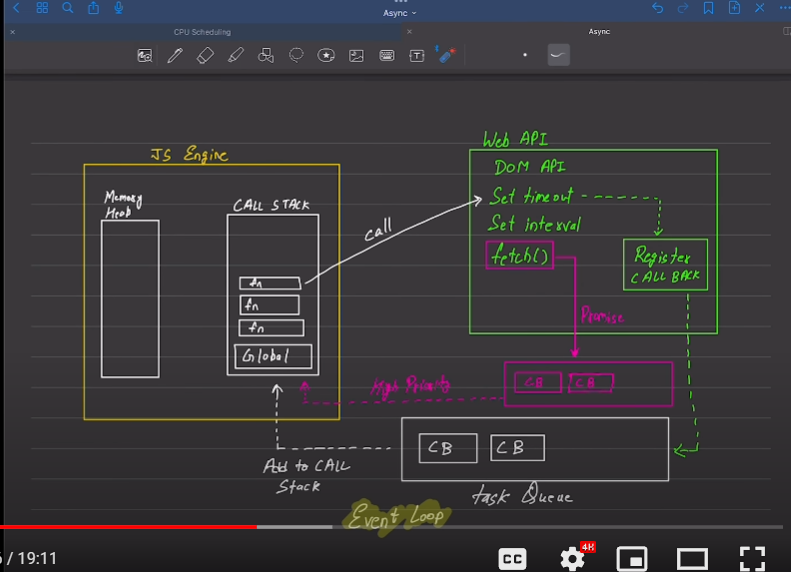 Async
CPU Scheduling
Async
JS Engine
Memory
Heap
CALL STACK
fn
fn
fn
Global
call
Web API
DOM API
Set timeout
Set interval
fetch()
Register
CALL BACK
Promise
CB CB
High Priority
CB CB
Add to CALL
Stack
task Queue
Event Loop
/ 19:11
CC
4K